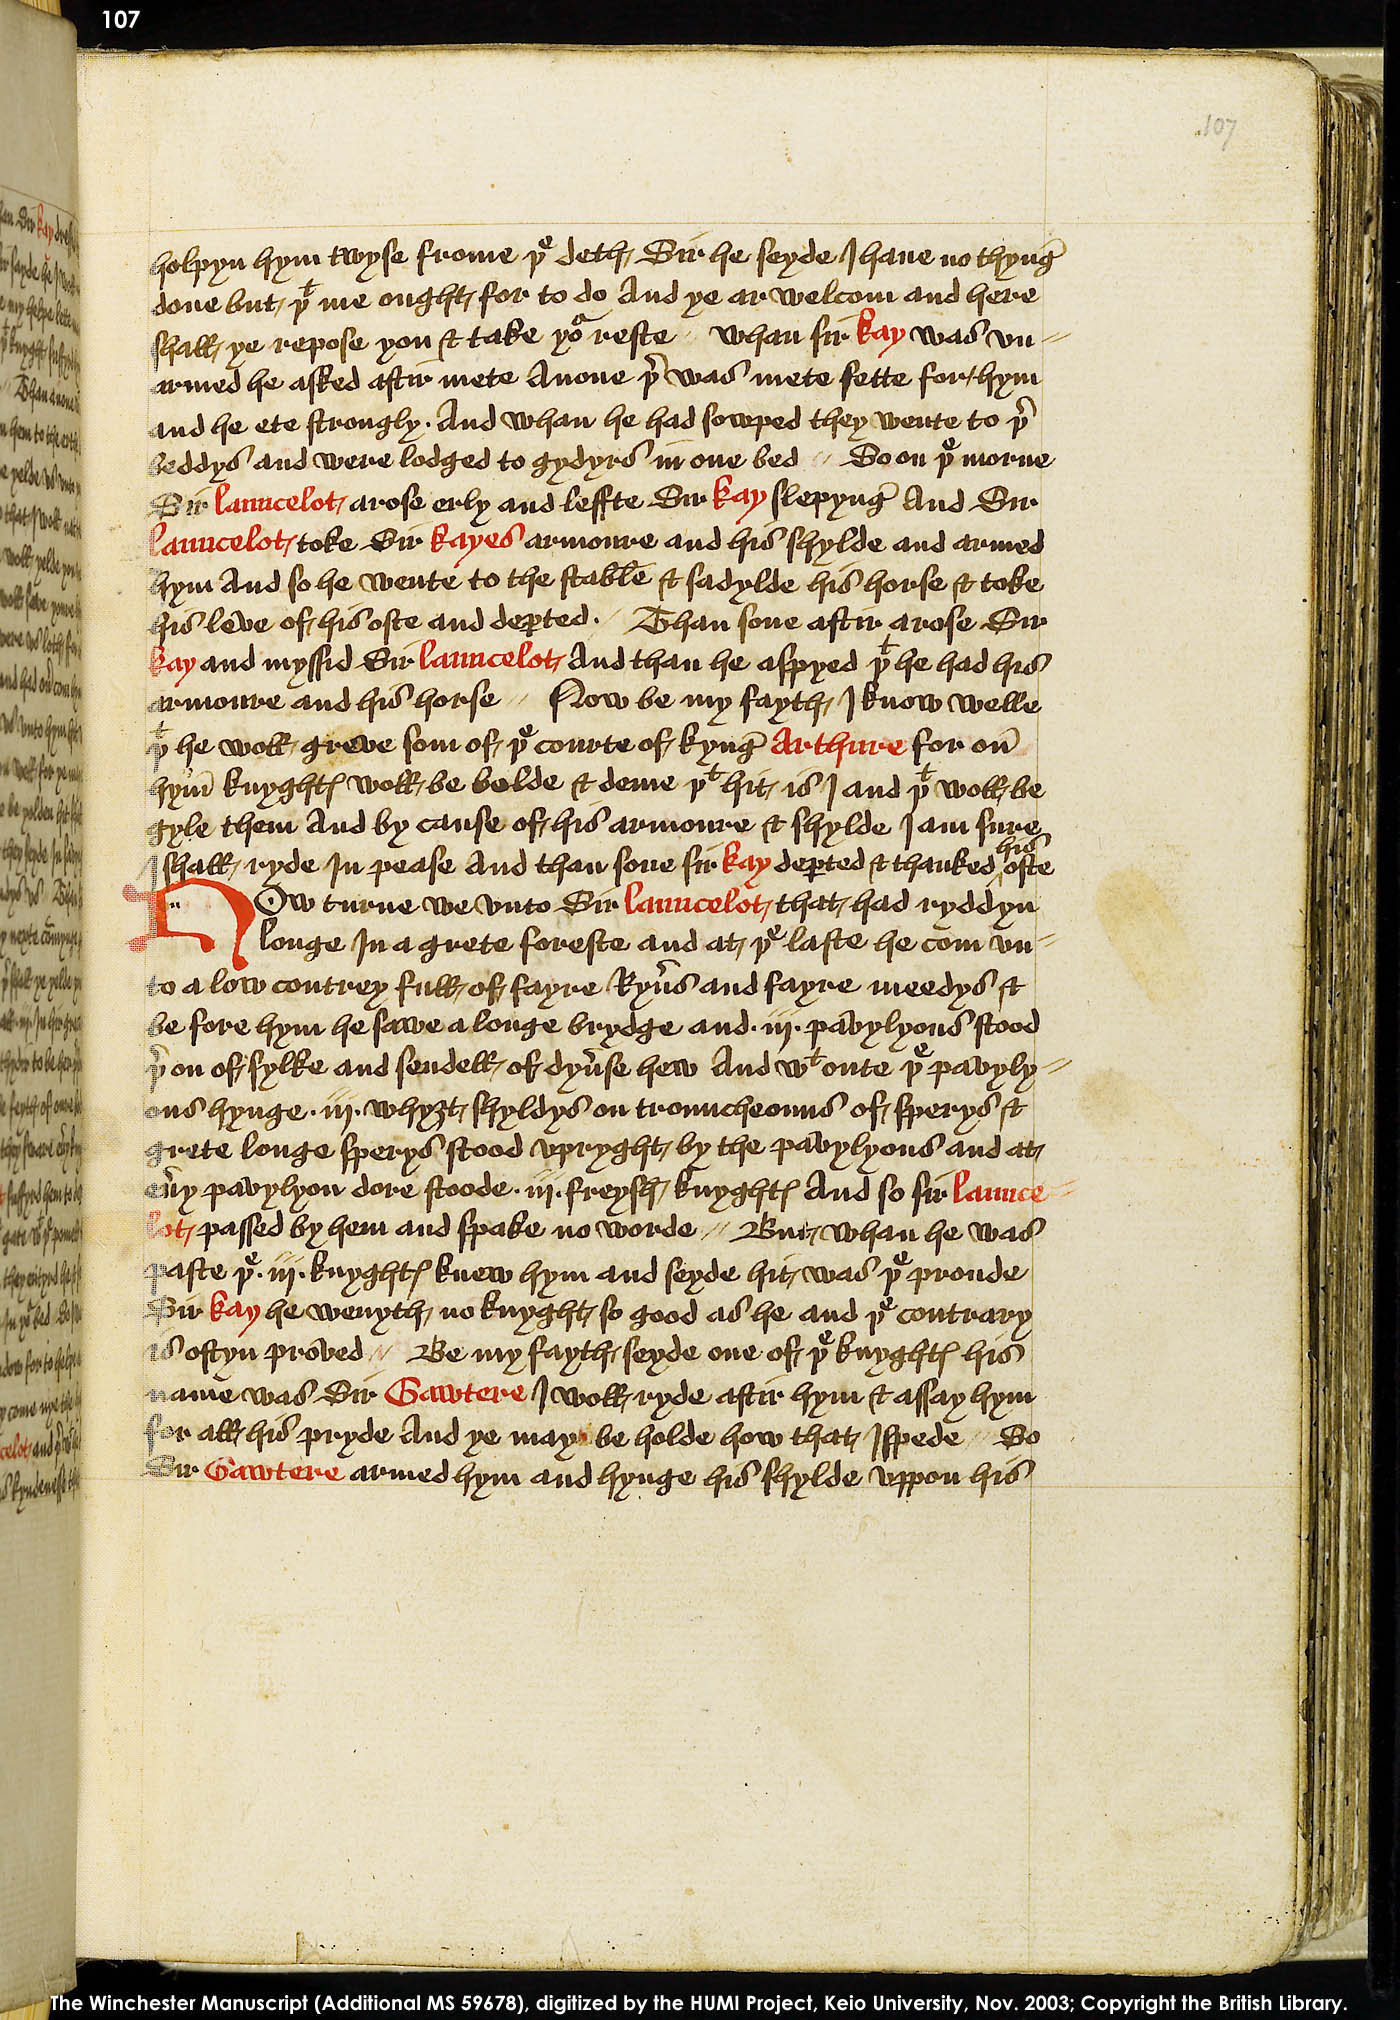 107
107
holpyn hym twyse frome þͤ deth Sir he seyde I haue no thyng̃
done but þͭ me ought for to do And ye ar welcom and here
shall ye repose you & take yoᵘ reste // whan sir kay was vn-
armed he asked aftir mete Anone þ̃ was mete sette for hym
and he ete strongly. And whan he had sowped they wente to þ̃
beddys and were lodged to gydyrs in one bed // So on þͤ morne
Sir launcelot arose erly and leffte Sir kay slepyng̃ And Sir
launcelot toke Sir kayes armoure and his shylde and armed
hym And so he wente to the stable & sadylde his horse & toke
his leve of his oste and deꝑted. // Than sone aftir arose Sir
kay and myssid Sir launcelot And than he aspyed þͭ he had his
armoure and his horse // Now be my fayth I know welle
þͭ he woll greve som of þͤ courte of kyng̃ Arthure for on̄
hym̄ knyghtꝭ woll be bolde & deme þͭ hit is I and þͭ woll be
gyle them And by cause of his armoure & shylde I am sure
I shall ryde In pease And than sone sir kay deꝑted & thanked ‸his oste
NOw turne we vnto Sir launcelot that had ryddyn
longe In a grete foreste and at þͤ laste he com vn-
to a low contrey full of fayre Ryũs and fayre meedys &
be fore hym he sawe a longe brydge and .iij. pavylyons stood
þ̃ on of sylke and sendell of dyũse hew And wͭ oute þͤ pavyly-
ons hynge .iij. whyȝt shyldys on trouncheouns of sperys &
grete longe sperys stood vpryght by the pavylyons and at
eũy pavylyon dore stoode .iij. freysh knyghtꝭ And so sir launce-
lot passed by hem and spake no worde // But whan he was
paste þͤ .iij. knyghtꝭ knew hym and seyde hit was þͤ proude
Sir kay he wenyth no knyght so good as he and þͤ contrary
is oftyn proved // Be my fayth seyde one of þͤ knyghtꝭ his
name was Sir Gawtere I woll ryde aftir hym & assay hym
for all his pryde And ye may be holde how that I spede // So
Sir Gawtere armed hym and hynge his shylde vppon his
The Winchester Manuscript (Additional MS 59678), digitized by the HUMI Project, Keio University, Nov. 2003; Copyright the British Library.